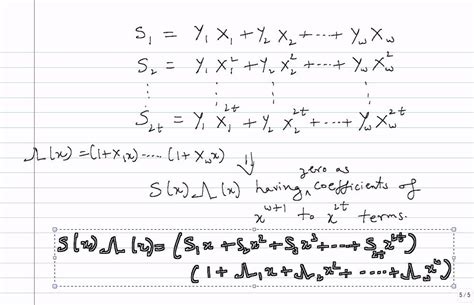 S₁ = Y₁ X₁ + Y₂ X₂ + ---- + Y_w X_w
S₂ = Y₁ X₁² + Y₂ X₂² + ---- + Y_w X_w²
S_2t = Y₁ X₁^2t + Y₂ X₂^2t + ---- + Y_w X_w^2t
Λ(x) = (1+X₁x) ----- (1+X_w x) ⇓
S(x) Λ(x) having zero as coefficients of
x^w+1 to x^2t terms.
S(x) Λ(x) = (S₁x + S₂x² + S₃x³ + ---- + S_2t x^2t)
(1 + Λ₁x + Λ₂x² + ---- + Λ_w x^w)
5 / 5